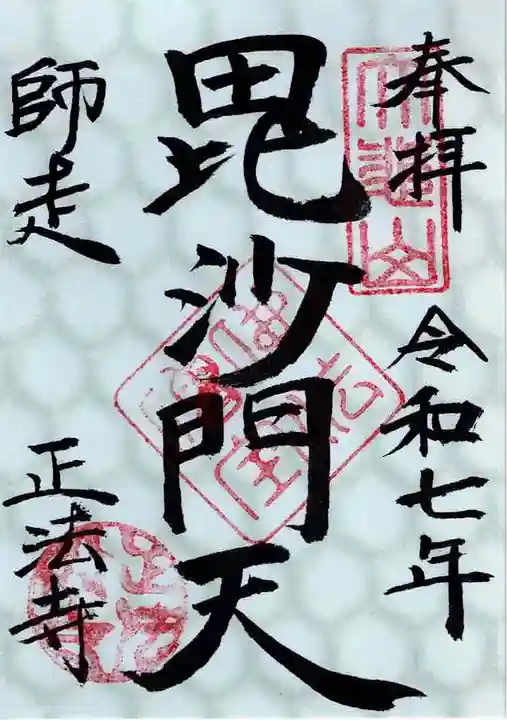 奉拝
令和七年
毘沙門天
師走
正法寺